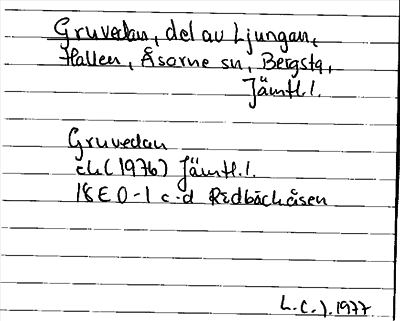 Gruvedan, del av Ljungan,
Hallen, Åsarne sn, Bergs tg,
Jämtl. l.
Gruvedan
ek (1976) Jämtl. l.
18E 0-1 c-d Rödbäckåsen
L.C.J. 1977